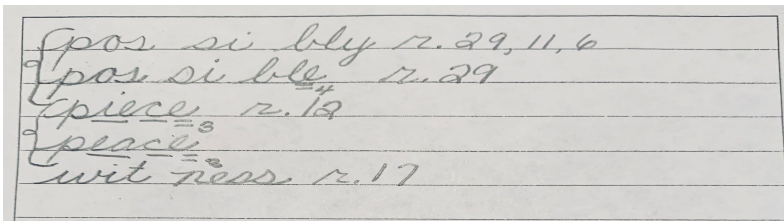 pos si bly r. 29, 11, 6
pos si ble4 r. 29
piece3 r. 12
peace3
wit ness r. 17